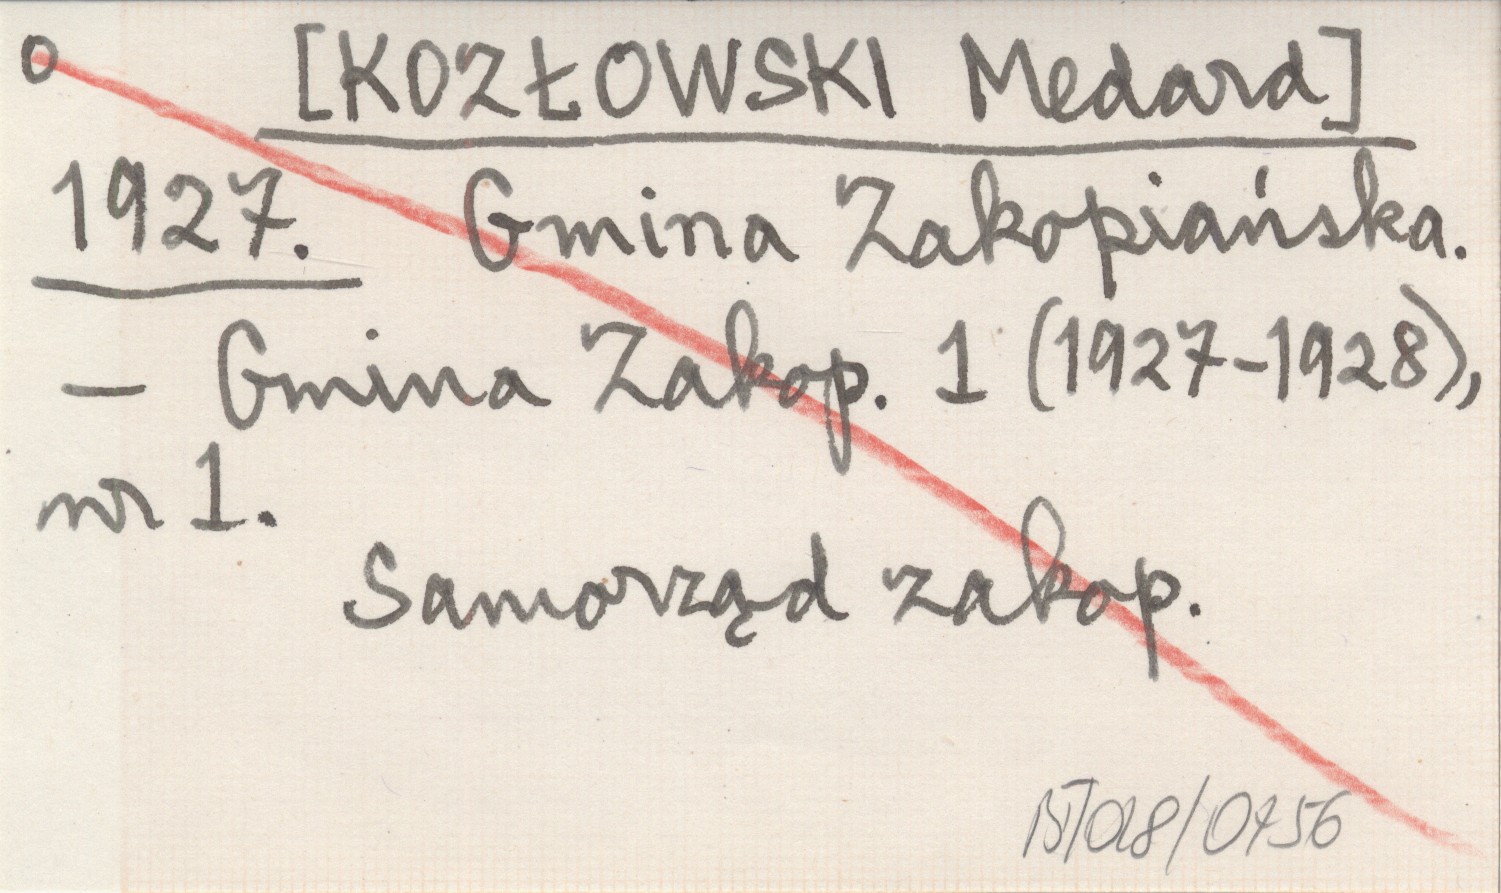 o [KOZŁOWSKI Medard]
1927. Gmina Zakopiańska.
— Gmina Zakop. 1 (1927-1928),
nr 1.
Samorząd zakop.